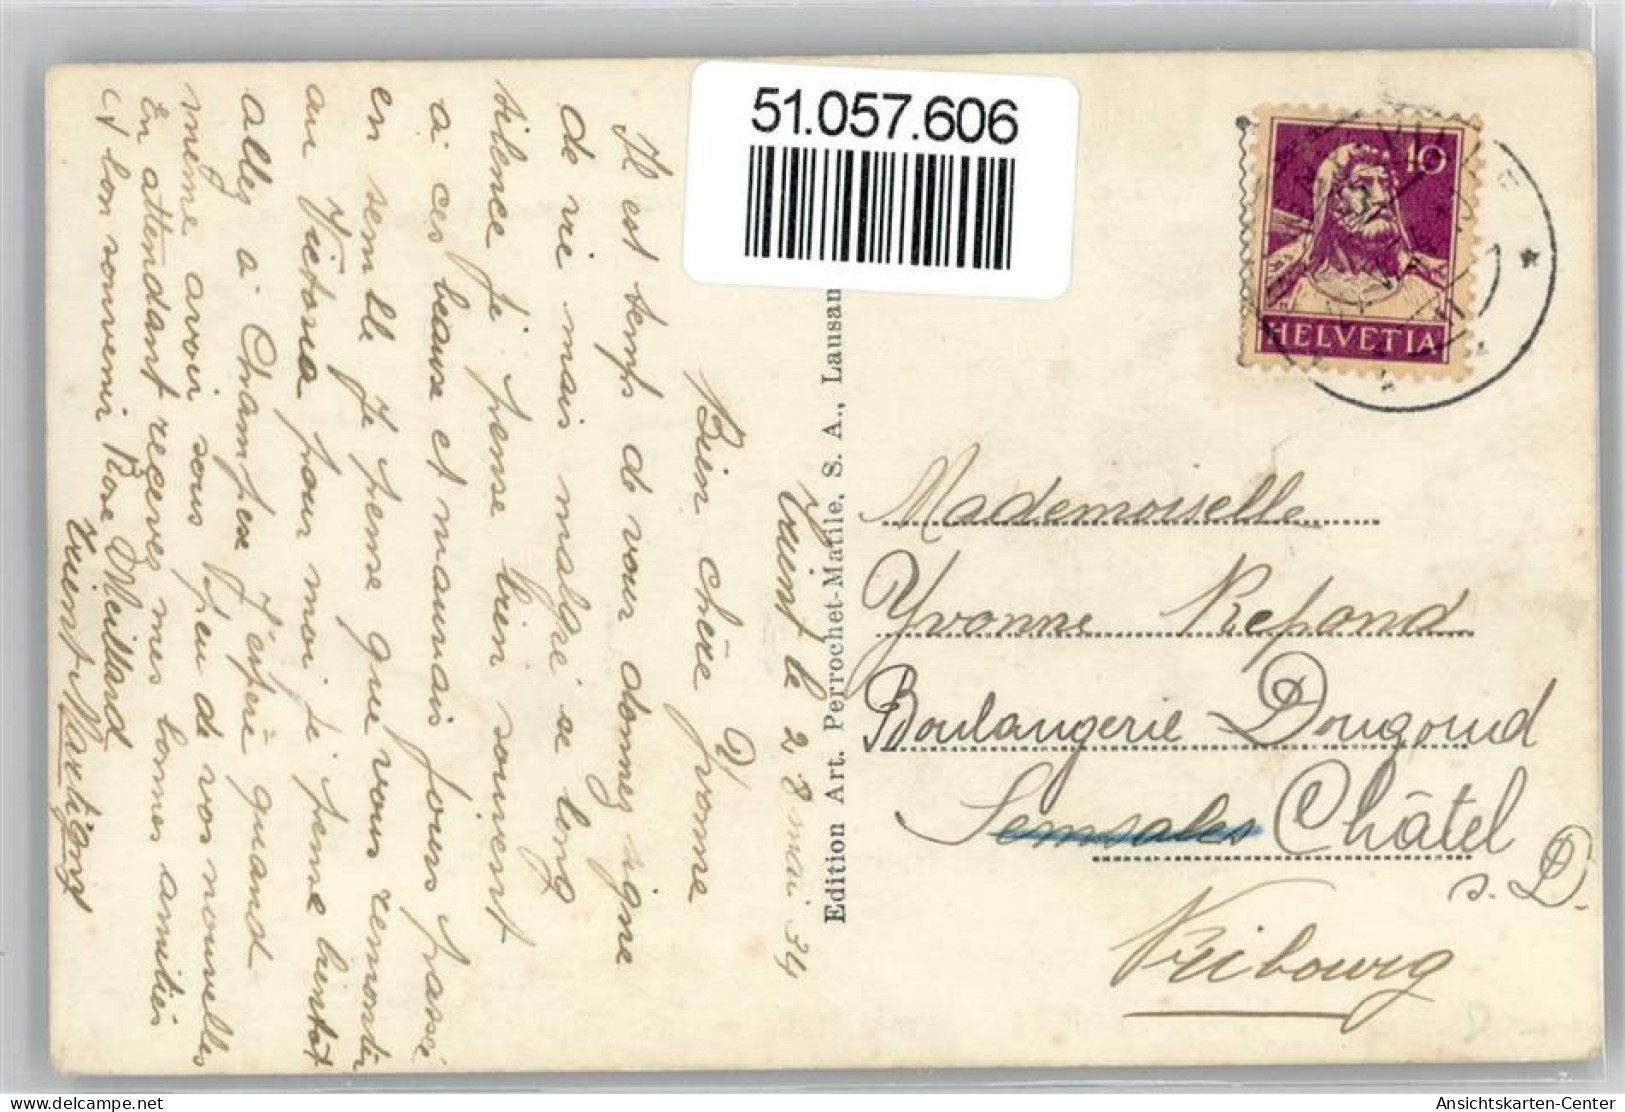 51.057.606
10
HELVETIA
Edition Art. Perrochet-Matile, S. A., Lausan
Trient le 28 mai 34
Bien chère Yvonne
Il est temps de vour donnez signe
de vie mais malgré se long
silence je pense bien souvent
a ces beaux et mauvais jours passé
en semble Je pense que vous remontez
au Victoria pour moi je pense bientot
allez a Champex J'espère quand
même avoir sous peu de vos nouvelles
En attendant recevez mes bonnes amitiés
et bon souvenir Rose Meilland
Trient s/ Martigny
Mademoiselle
Yvonne Repond
Boulangerie Dougoud
Semsales Châtel
s. D.
Fribourg
Ansichtskarten-Center